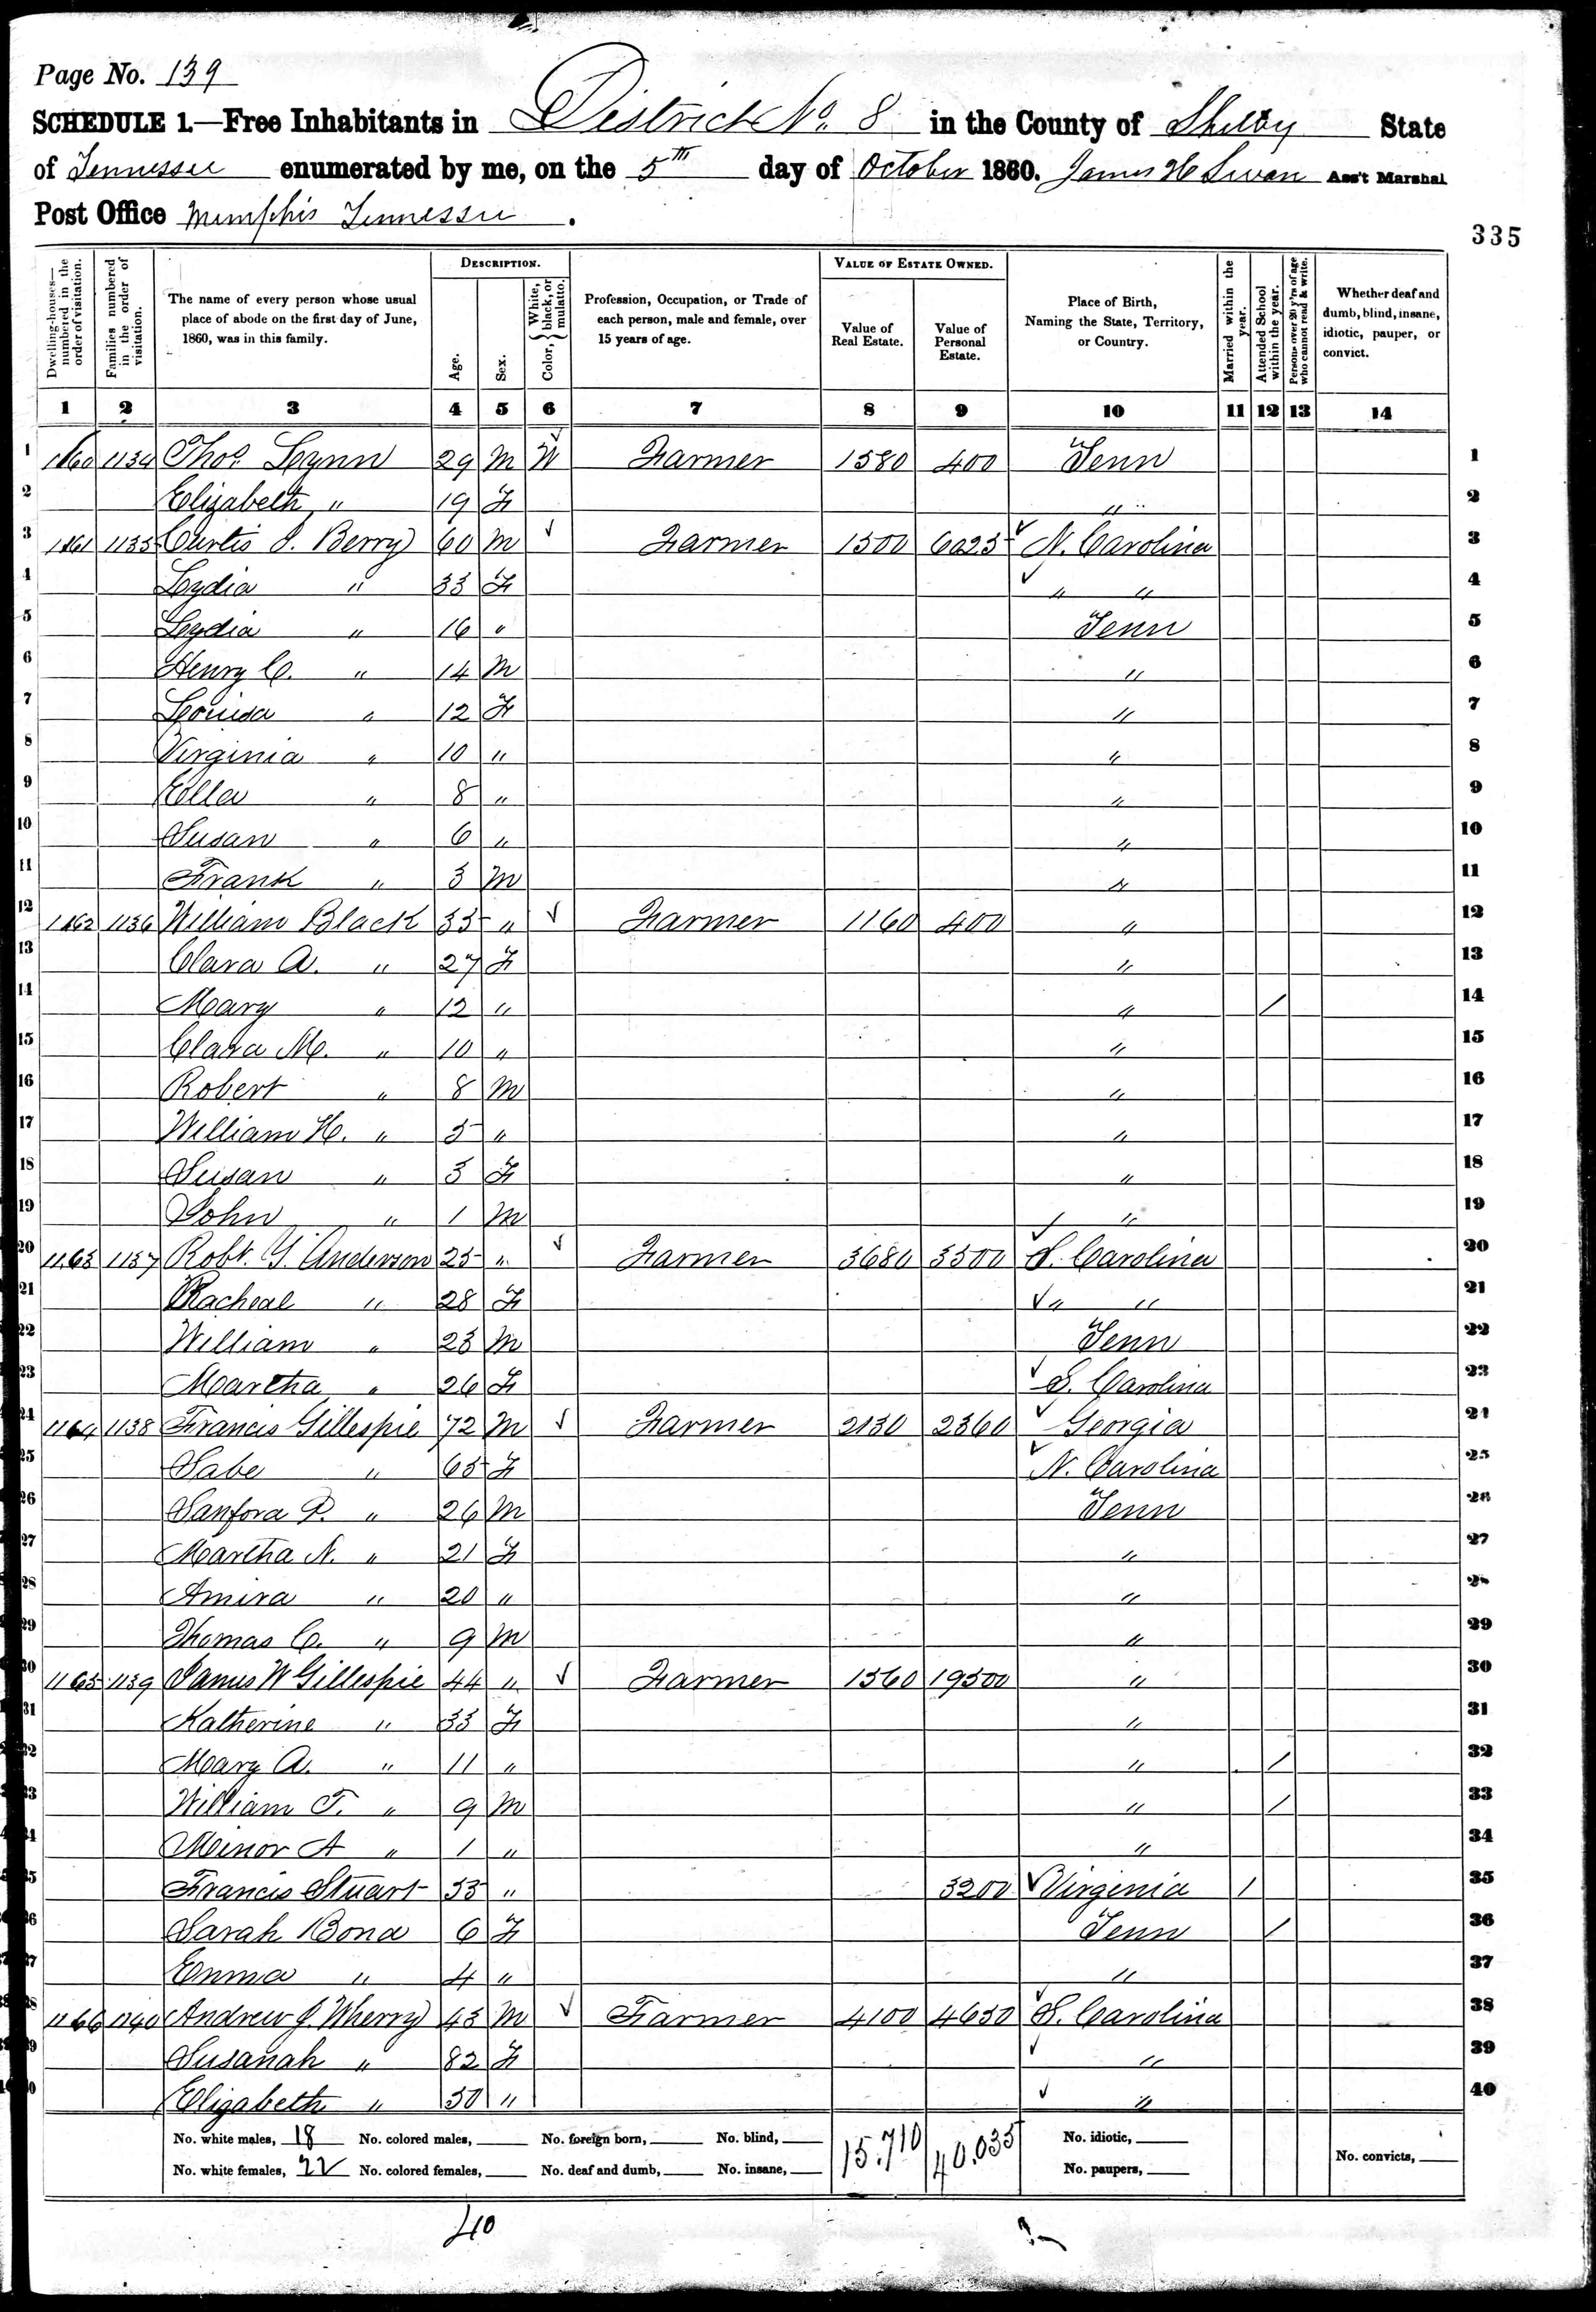 Page No. 139
SCHEDULE 1.—Free Inhabitants in District No. 8 in the County of Shelby State
of Tennessee enumerated by me, on the 5th day of October 1860. James H Swan Ass't Marshal
Post Office Memphis Tennessee.
335
Dwelling-houses—numbered in the order of visitation. Families numbered in the order of visitation. The name of every person whose usual place of abode on the first day of June, 1860, was in this family. DESCRIPTION. Age. Sex. Color, White, black, or mulatto. Profession, Occupation, or Trade of each person, male and female, over 15 years of age. VALUE OF ESTATE OWNED. Value of Real Estate. Value of Personal Estate. Place of Birth, Naming the State, Territory, or Country. Married within the year. Attended School within the year. Persons over 20 y'rs of age who cannot read & write. Whether deaf and dumb, blind, insane, idiotic, pauper, or convict.
1 2 3 4 5 6 7 8 9 10 11 12 13 14
1 1160 1134 Thos. Lynn 29 M W Farmer 1580 400 Tenn 1
2 Elizabeth " 19 F " 2
3 1161 1135 Curtis J. Berry 60 M ✓ Farmer 1500 6025 ✓ N. Carolina 3
4 Lydia " 33 F ✓ " " 4
5 Lydia " 16 " Tenn 5
6 Henry C. " 14 M " 6
7 Louisa " 12 F " 7
8 Virginia " 10 " " 8
9 Ella " 8 " " 9
10 Susan " 6 " " 10
11 Frank " 3 M " 11
12 1162 1136 William Black 35 " ✓ Farmer 1160 400 " 12
13 Clara A. " 27 F " 13
14 Mary " 12 " " / 14
15 Clara M. " 10 " " 15
16 Robert " 8 M " 16
17 William H. " 5 " " 17
18 Susan " 3 F " 18
19 John " 1 M " 19
20 1163 1137 Robt. G. Anderson 25 " ✓ Farmer 3680 3500 ✓ S. Carolina 20
21 Racheal " 28 F ✓ " " 21
22 William " 23 M Tenn 22
23 Martha " 26 F ✓ S. Carolina 23
24 1164 1138 Francis Gillespie 72 M ✓ Farmer 2130 2360 ✓ Georgia 24
25 Sabe " 65 F ✓ N. Carolina 25
26 Sanford P. " 26 M Tenn 26
27 Martha N. " 21 F " 27
28 Amira " 20 " " 28
29 Thomas C. " 9 M " 29
30 1165 1139 James W Gillespie 44 " ✓ Farmer 1560 19500 " 30
31 Katherine " 33 F " 31
32 Mary A. " 11 " " / 32
33 William T. " 9 M " / 33
34 Minor A " 1 " " 34
35 Francis Stuart 35 " 3200 ✓ Virginia / 35
36 Sarah Bond 6 F Tenn / 36
37 Emma " 4 " " 37
38 1166 1140 Andrew J. Wherry 43 M ✓ Farmer 4100 4650 ✓ S. Carolina 38
39 Susanah " 82 F ✓ " 39
40 Elizabeth " 50 " ✓ " 40
No. white males, 18 No. colored males, No. foreign born, No. blind, 15.710 40.035 No. idiotic,
No. white females, 22 No. colored females, No. deaf and dumb, No. insane, No. paupers, No. convicts,
40